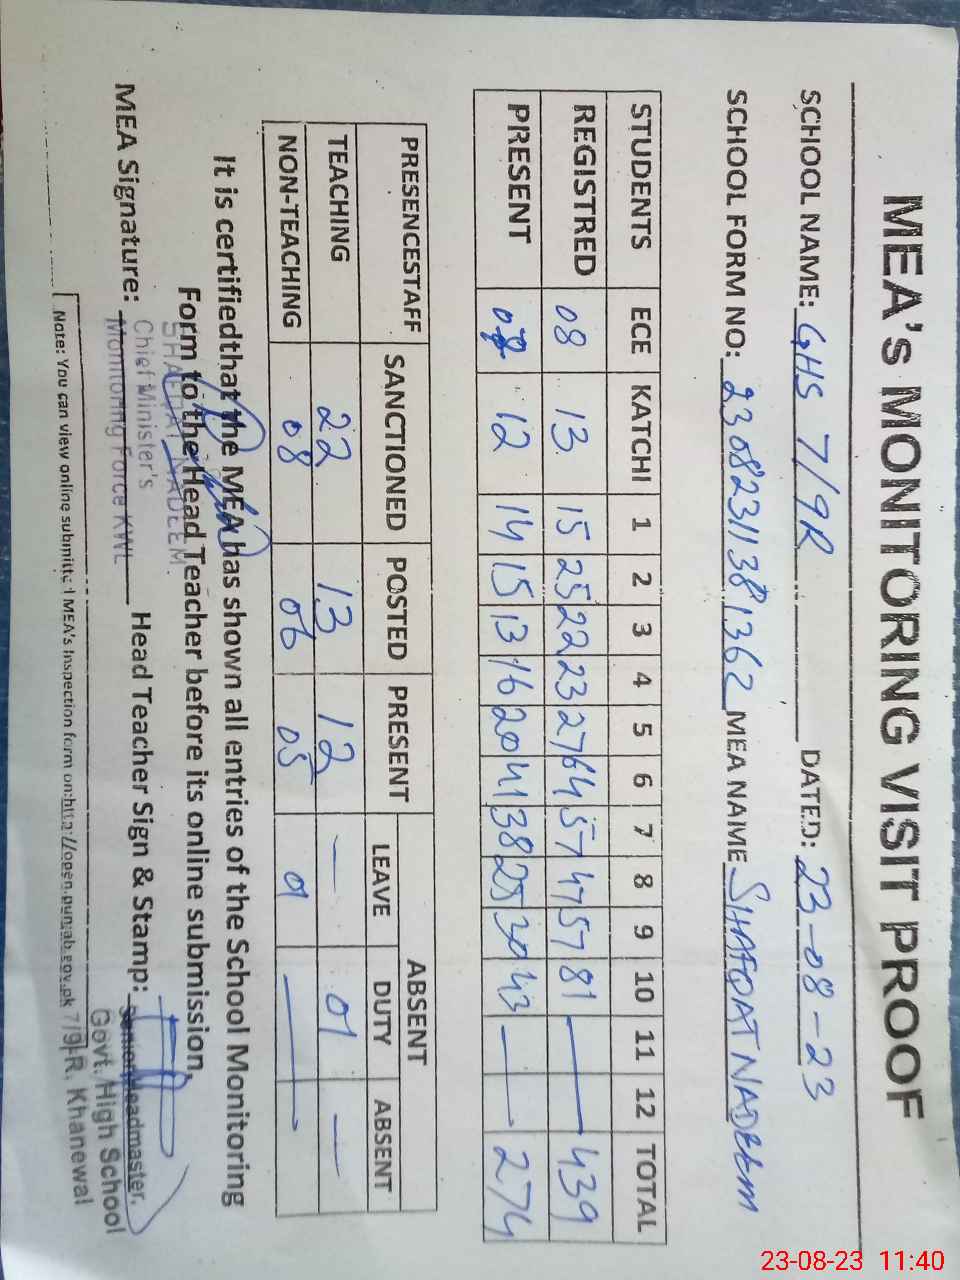 MEA's MONITORING VISIT PROOF
SCHOOL NAME: GHS 7/9R DATED: 23-08-23
SCHOOL FORM NO: 23082311381362 MEA NAME SHAFQAT NADEEM
STUDENTS ECE KATCHI 1 2 3 4 5 6 7 8 9 10 11 12 TOTAL
REGISTRED 08 13 15 25 22 23 27 64 57 47 57 81 — 439
PRESENT 07 12 14 15 13 16 20 41 38 25 30 43 — 274
PRESENCESTAFF SANCTIONED POSTED PRESENT ABSENT
LEAVE DUTY ABSENT
TEACHING 22 13 12 — 01 —
NON-TEACHING 08 06 05 01 —
It is certifiedthat the MEA has shown all entries of the School Monitoring
Form to the Head Teacher before its online submission.
SHAFQAT NADEEM
Chief Minister's
Monitoring Force KWL
MEA Signature: Head Teacher Sign & Stamp:
Senior Headmaster,
Govt. High School
7/9-R, Khanewal
Note: You can view online submitted MEA's Inspection form on:http://open.punjab.gov.pk
23-08-23 11:40